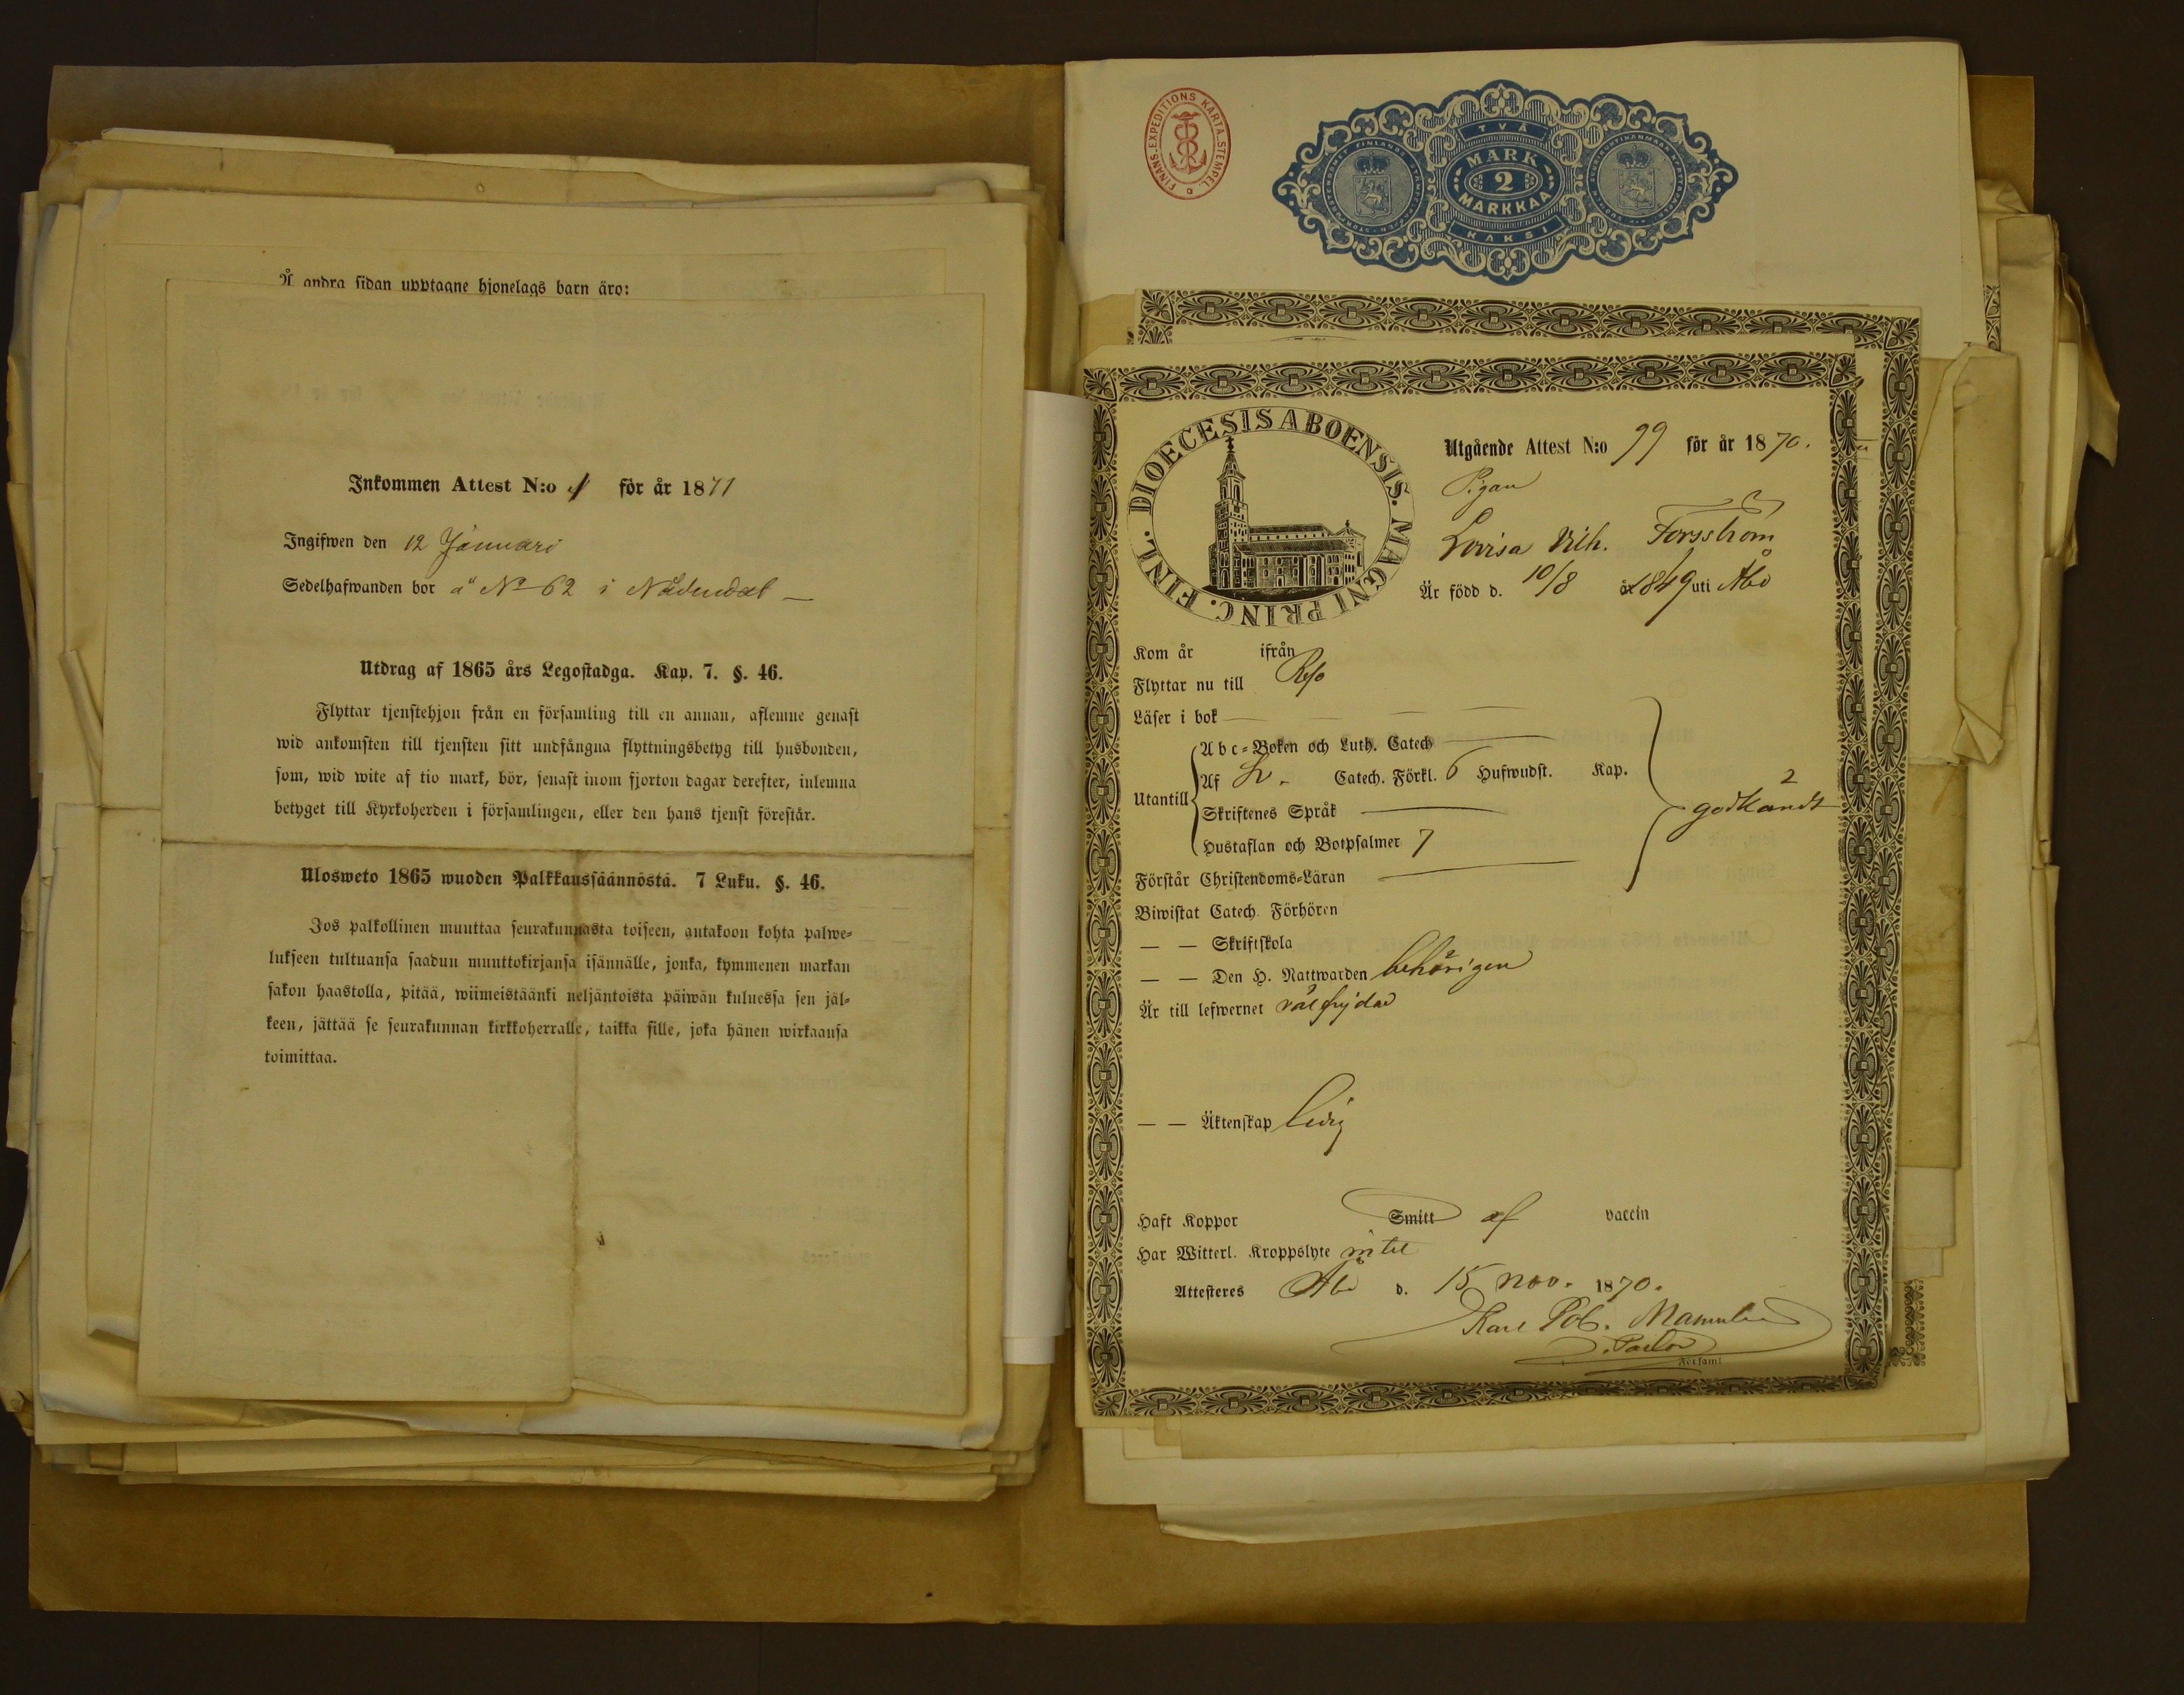 Å andra sidan upptagne hjonelags barn äro:
Inkommen Attest N:o 1 för år 1871
Ingifwen den 12 Januari
Sedelhafwanden bor å No 62 i Nådendal —
Utdrag af 1865 års Legostadga. Kap. 7. §. 46.
Flyttar tjenstehjon från en församling till en annan, aflemne genast
wid ankomsten till tjensten sitt undfångna flyttningsbetyg till husbonden,
som, wid wite af tio mark, bör, senast inom fjorton dagar derefter, inlemna
betyget till Kyrkoherden i församlingen, eller den hans tjenst förestår.
Ulosweto 1865 wuoden Palkkaussäännöstä. 7 Luku. §. 46.
Jos palkollinen muuttaa seurakunnasta toiseen, antakoon kohta palwe=
lukseen tultuansa saadun muuttokirjansa isännälle, jonka, kymmenen markan
sakon haastolla, pitää, wiimeistäänki neljäntoista päiwän kuluessa sen jäl=
keen, jättää se seurakunnan kirkkoherralle, taikka sille, joka hänen wirkaansa
toimittaa.
FINANS-EXPEDITIONS KARTA-STEMPEL
TVÅ
MARK
2
MARKKAA
KAKSI
DIOECESIS ABOENSIS. MAGNI PRINC. FINL.
Utgående Attest N:o 99 för år 1870.
Pigan
Lovisa Vilh. Forsström
Är född d. 10/8 år 1849 uti Åbo
Kom år ifrån
Flyttar nu till Reso
Läser i bok
Utantill
Abc=Boken och Luth. Catech
Af Sv. Catech. Förkl. 6 Hufwudst. Kap.
godkändt
Skriftenes Språk
Hustaflan och Botpsalmer 7
Förstår Christendoms=Läran
Biwistat Catech. Förhören
— — Skriftskola
— — Den H. Nattwarden behörigen
Är till lefwernet välfrejdad
— — Äktenskap ledig
Haft Koppor Smitt af vaccin
Har Witterl. Kroppslyte intet
Attesteres Åbo d. 15 Nov. 1870.
Karl Rob. Malmström
Församl